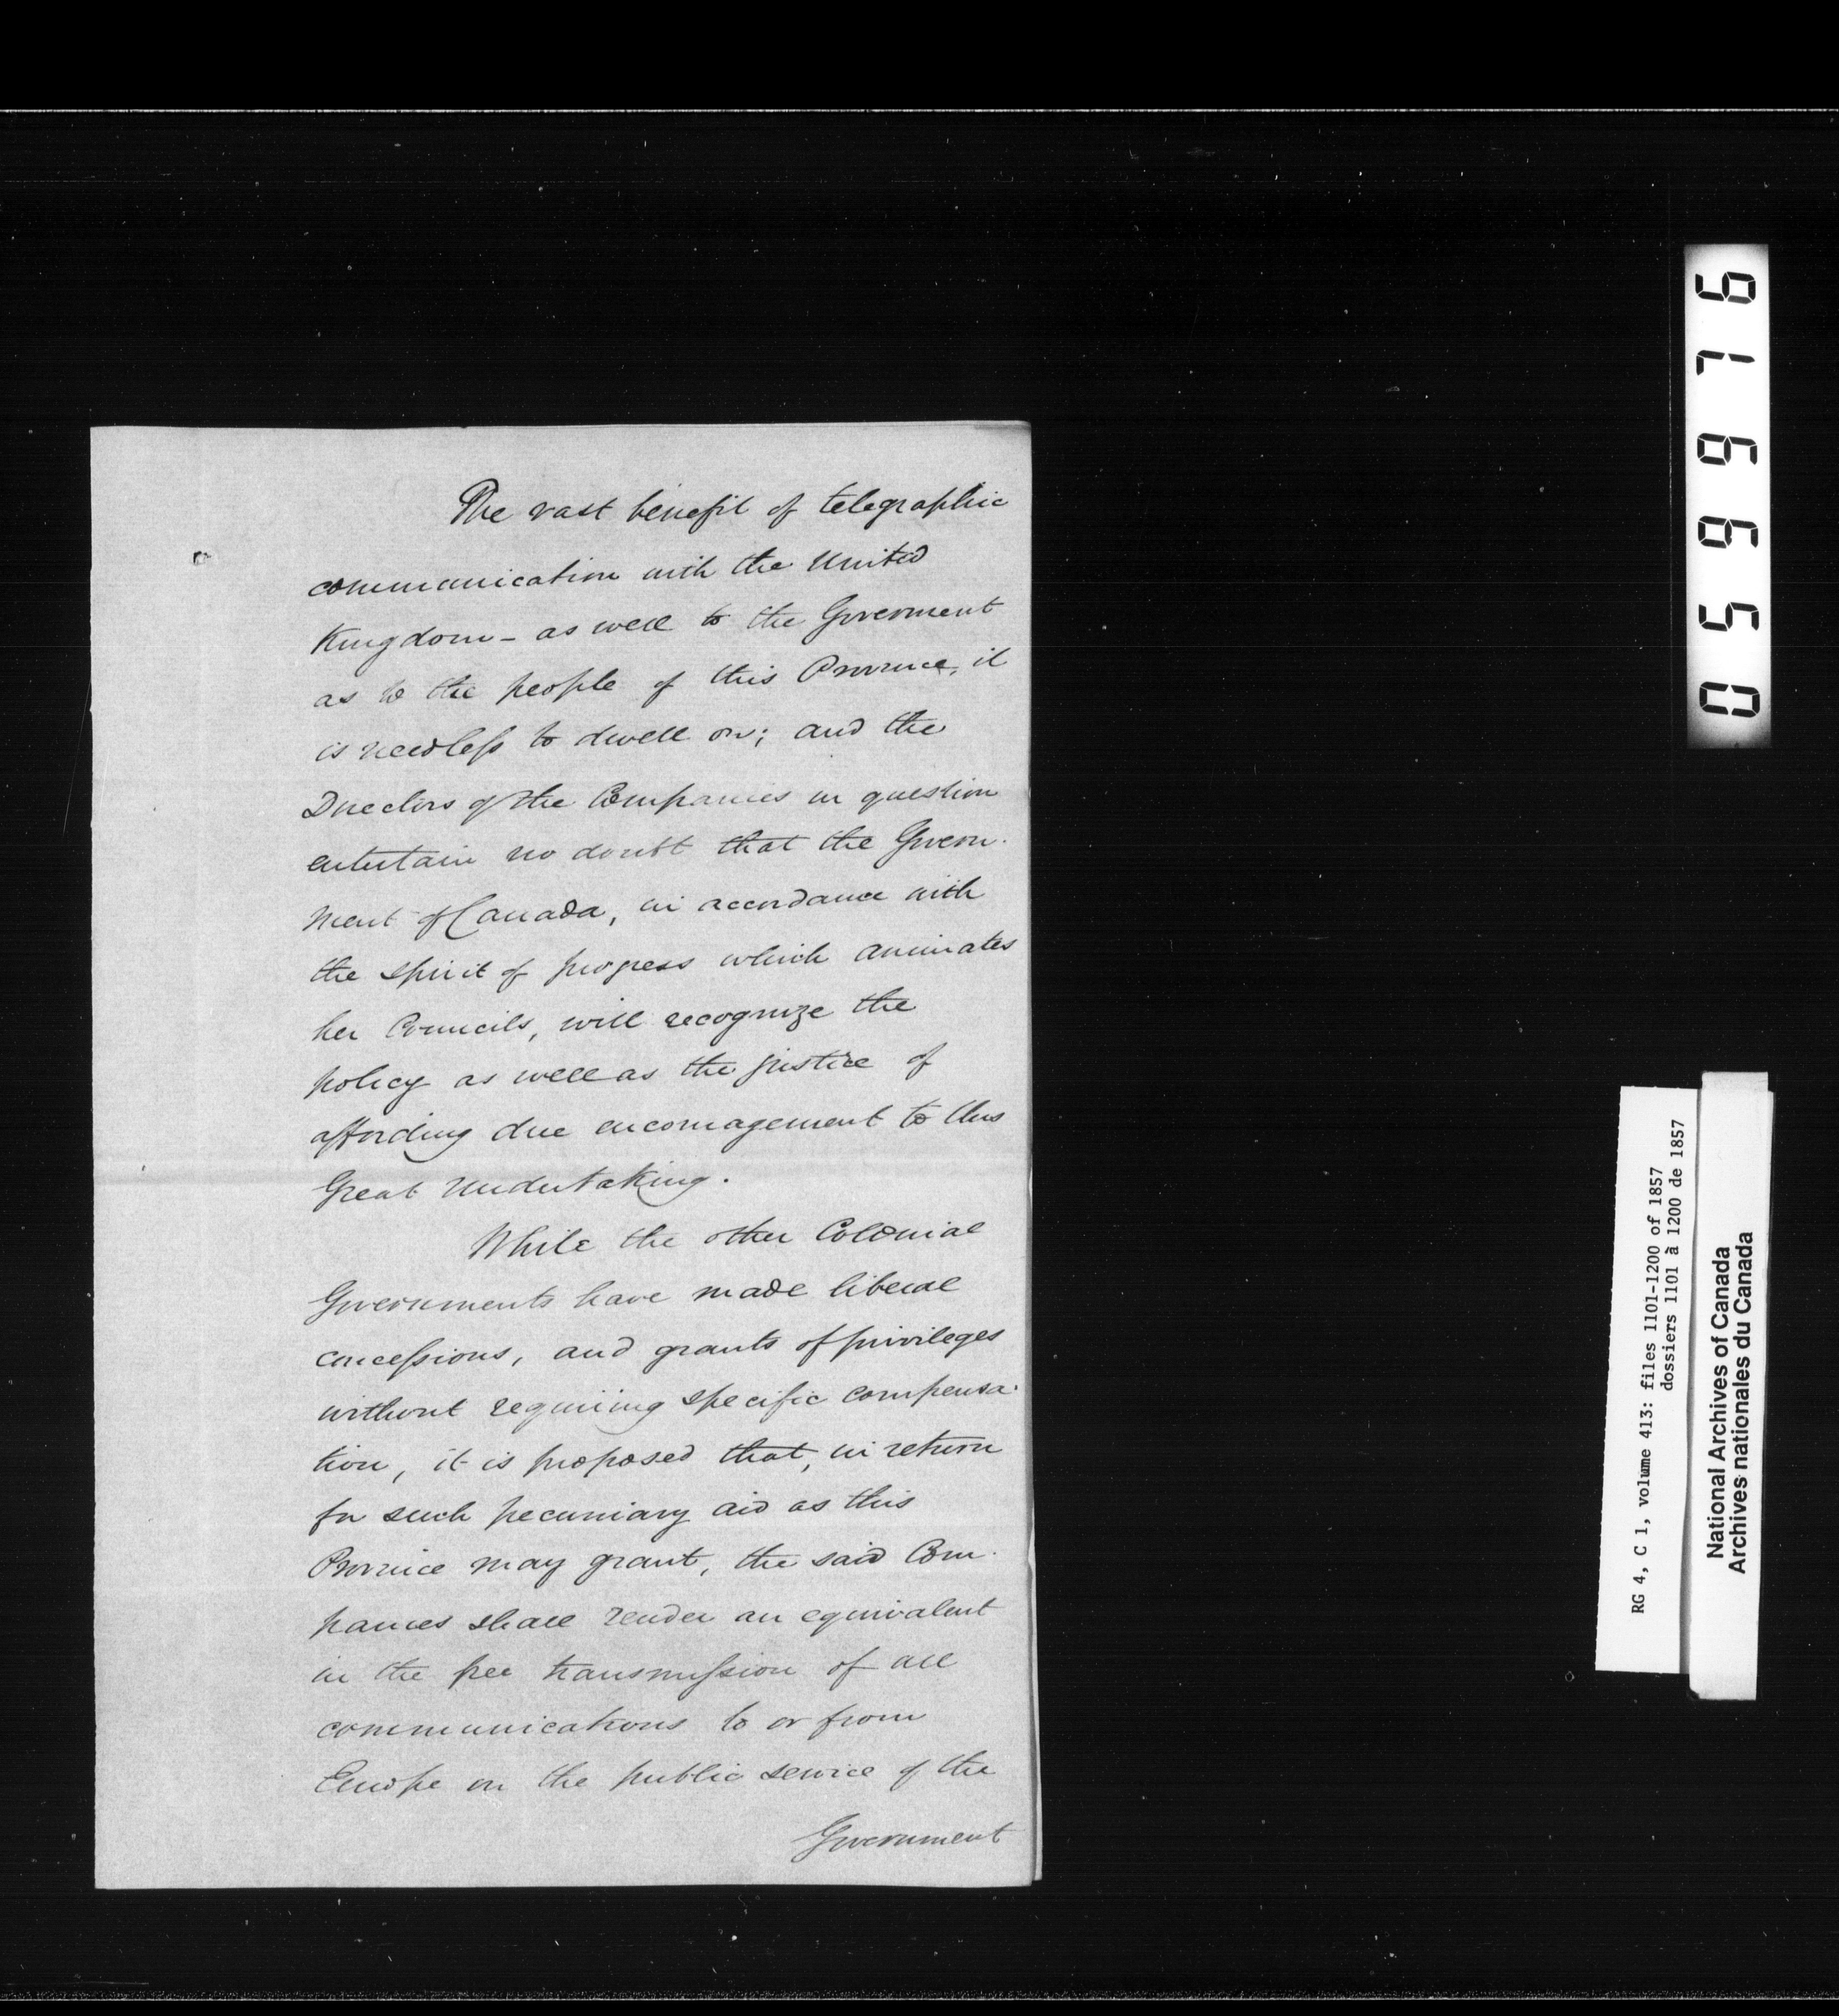 The vast benefit of telegraphic
communication with the United
Kingdom – as well to the Goverment
as to the people of this Province, it
is needless to dwell on; and the
Directors of the Companies in question
entertain no doubt that the Govern-
ment of Canada, in accordance with
the spirit of progress which animates
her Councils, will recognize the
policy as well as the justice of
affording due encouragement to this
Great Undertaking.
While the other Colonial
Governments have made liberal
concessions, and grants of privileges
without requiring specific compensa-
tion, it is proposed that, in return
for such pecuniary aid as this
Province may grant, the said Com-
panies shall render an equivalent
in the free transmission of all
communications to or from
Europe on the public service of the
Government
059976
RG 4, C 1, volume 413: files 1101-1200 of 1857
dossiers 1101 à 1200 de 1857
National Archives of Canada
Archives nationales du Canada